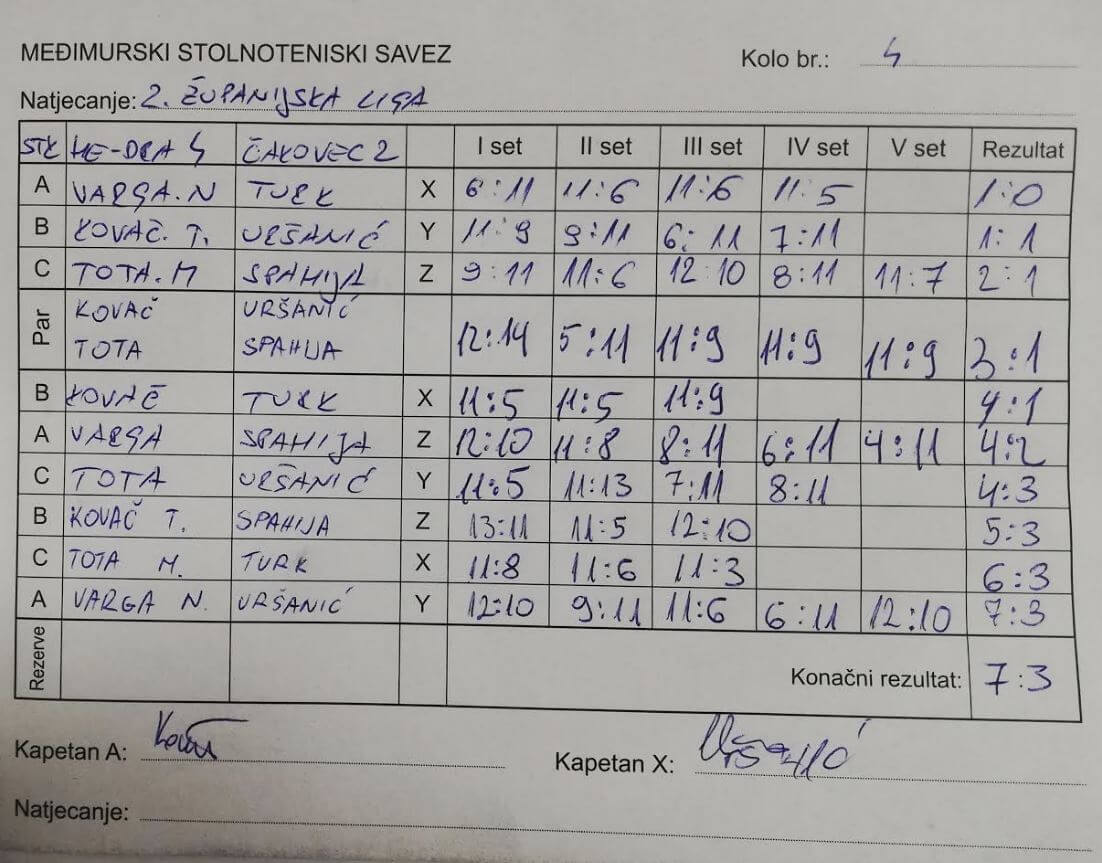 MEĐIMURSKI STOLNOTENISKI SAVEZ
Kolo br.: 4
Natjecanje: 2. ŽUPANIJSKA LIGA
STK ME-DRA 4 ČAKOVEC 2 I set II set III set IV set V set Rezultat
A VARGA.N TURK X 6:11 11:6 11:6 11:5 1:0
B KOVAČ. T. URŠANIĆ Y 11:9 9:11 6:11 7:11 1:1
C TOTA.M SPAHIJA Z 9:11 11:6 12:10 8:11 11:7 2:1
Par KOVAČ URŠANIĆ
TOTA SPAHIJA 12:14 5:11 11:9 11:9 11:9 3:1
B KOVAČ TURK X 11:5 11:5 11:9 4:1
A VARGA SPAHIJA Z 12:10 11:8 8:11 6:11 4:11 4:2
C TOTA URŠANIĆ Y 11:5 11:13 7:11 8:11 4:3
B KOVAČ T. SPAHIJA Z 13:11 11:5 12:10 5:3
C TOTA M. TURK X 11:8 11:6 11:3 6:3
A VARGA N. URŠANIĆ Y 12:10 9:11 11:6 6:11 12:10 7:3
Rezerve Konačni rezultat: 7:3
Kapetan A: Kovač
Kapetan X: Uršanić
Natjecanje: